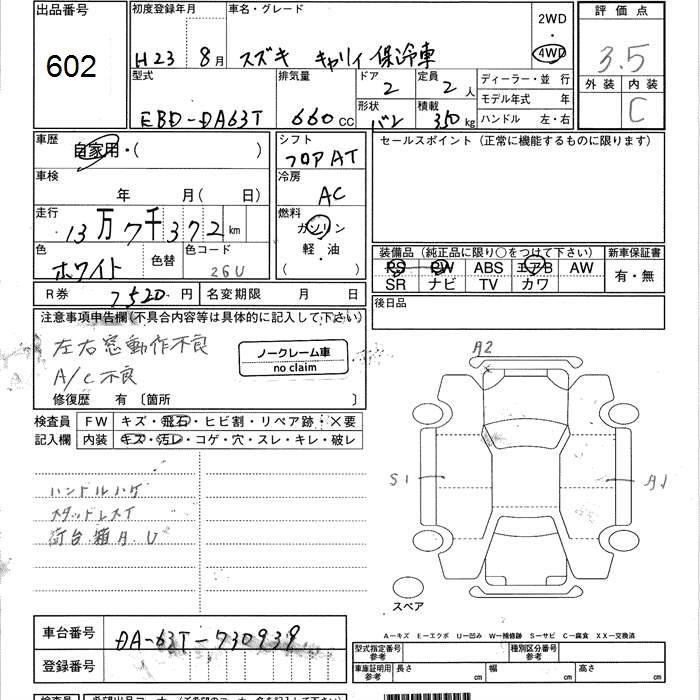 出品番号 602
初度登録年月 H23 8月
車名・グレード スズキ キャリィ 保冷車
2WD ・ 4WD
評価点 3.5
外装 内装 C
型式 EBD-DA63T
排気量 660 CC
ドア 2 定員 2 人
形状 バン 積載 350 kg
ディーラー・並行
モデル年式 年
ハンドル 左・右
車歴 自家用・( )
シフト フロアAT
セールスポイント (正常に機能するものに限ります)
車検 年 月( 日)
冷房 AC
走行 13万7千372 km
燃料 ガソリン ・ 軽・油 ( )
色 ホワイト 色替 色コード 26U
装備品 (純正品に限り○をつけて下さい) 新車保証書
PS PW ABS エアB AW 有・無
SR ナビ TV カワ
R券 7520円 名変期限 月 日
後日品
注意事項申告欄(不具合内容等は具体的に記入して下さい)
左右窓動作不良
A/C不良
ノークレーム車
no claim
修復歴 有 〔箇所 〕
検査員 FW キズ・飛石・ヒビ割・リペア跡・×要
記入欄 内装 キズ・汚レ・コゲ・穴・スレ・キレ・破レ
ハンドルハゲ
スタッドレスT
荷台.箱A.U
A2
S1
A1
スペア
A-キズ E-エクボ U-凹み W-補修跡 S-サビ C-腐食 XX-交換済
車台番号 DA-63T-730939
登録番号
型式指定番号 参考 種別区分番号 参考
車庫証明用 参考 長さ 幅 高さ
cm cm cm